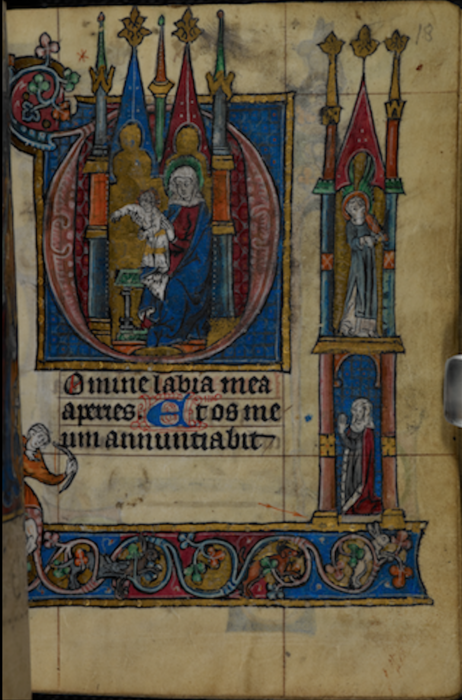 18
DOmine labia mea
aperies. Et os me
um annuntiabit